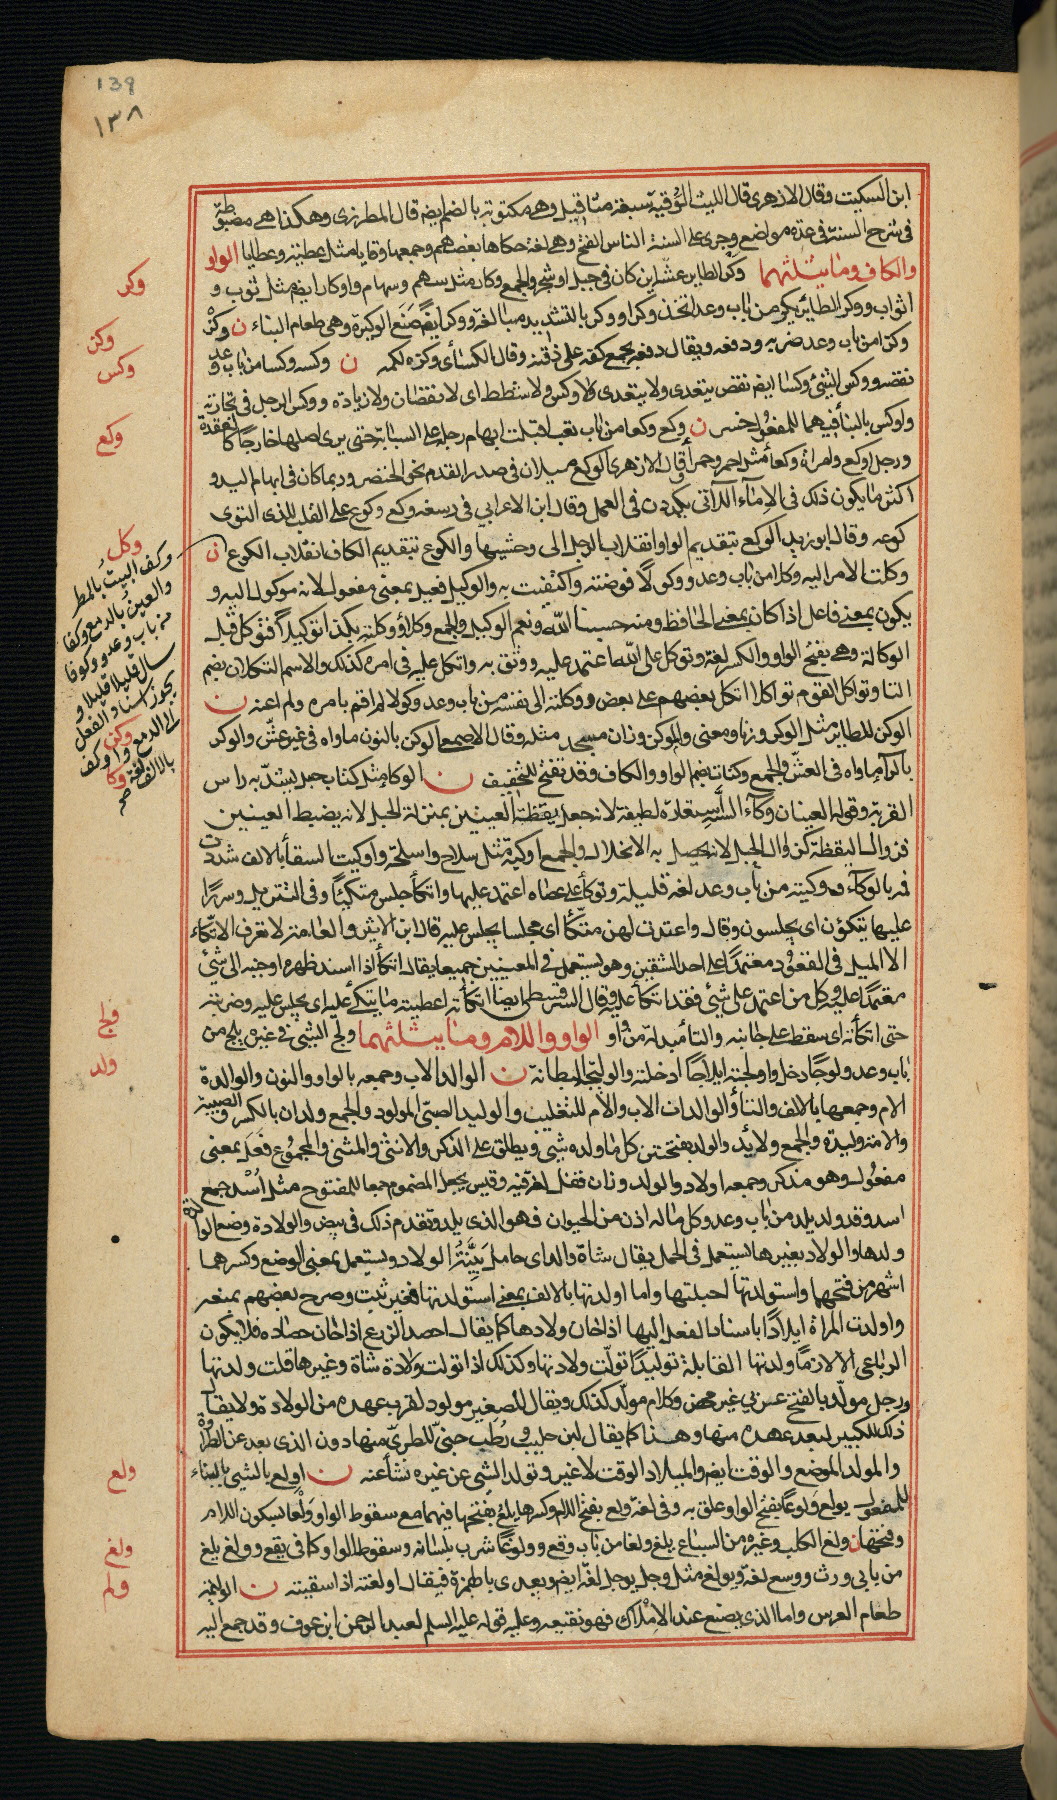 139
١٣٨
ابن السكيت وقال الازهري قال الليث الوقية سبعة مثاقيل وهي مكتوبة بالضم ايضا قال المطرزي وهكذا هي مضبوطة
في شرح السنة في عدة مواضع وجرى على السنة الناس الفتح وهي لغة حكاها بعضهم وجمعها وقايا مثل عطية وعطايا الواو
والكاف وما يثلثهما وكر الطاير عشه اين كان في جبل او شجر والجمع وكار مثل سهم وسهام واوكار ايضا مثل ثوب و
اثواب ووكر الطائر يكر من باب وعد اتخذ وكرا ووكر بالتشديد مبالغة ووكر ايضا صنع الوكيرة وهي طعام البناء ن وكزه
وكزا من باب وعد ضربه ودفعه ويقال دفعه بجمع كفه على ذقنه وقال الكسائي وكزه لكمه ن وكسه وكسا من باب وعد
نقصه ووكس الشئ وكسا ايضا نقص يتعدى ولا يتعدى ولا وكس ولا شطط اى لا نقصان ولا زيادة ووكس الرجل في تجارته
واوكس بالبناء فيهما للمفعول خسر ن وكع وكعا من باب تعب اقبلت ابهام رجله على السبابة حتى يرى اصلها خارجا كالعقدة
ورجل اوكع وامراة وكعاء مثل احمر وحمراء قال الازهري الوكع ميلان في صدر القدم نحو الخنصر وربما كان في ابهام اليد و
اكثر ما يكون ذلك في الاماء اللاتي يكددن في العمل وقال ابن الاعرابي في رسغه وكع وكوع على القلب للذى التوى
كوعه وقال ابو زيد الوكع بتقديم الواو انقلاب الرجل الى وحشيها والكوع بتقديم الكاف انقلاب الكوع ن
وكلت الامر اليه وكلا من باب وعد ووكولا فوضته واكتفيت به والوكيل فعيل بمعنى مفعول لانه موكول اليه و
يكون بمعنى فاعل اذا كان بمعنى الحافظ ومنه حسبنا الله ونعم الوكيل والجمع وكلاء ووكلته توكيلا فتوكل قبل
الوكالة وهي بفتح الواو والكسر لغة وتوكل على الله اعتمد عليه ووثق به واتكل عليه في امره كذلك والاسم التكلان بضم
التا وتواكل القوم تواكلا اتكل بعضهم على بعض ووكلته الى نفسه من باب وعد وكولا لم اقم بامره ولم اعنه ن
الوكن للطائر مثل الوكر وزنا ومعنى والموكن وزان مسجد مثله وقال الاصمعي الوكن بالنون ماواه في غير عش والوكر
بالراء ماواه في العش والجمع وكنات بضم الواو والكاف وقد تفتح للتخفيف ن الوكا مثل كتاب حبل يشد به راس
القربة وقوله العينان وكاء السه استعارة لطيفة لانه جعل يقظة العينين بمنزلة الحبل لانه يضبط العينين
فزوال اليقظة كزوال الحبل لانه يحصل به الانحلال والجمع اوكية مثل سلاح واسلحة واوكيت السقاء بالالف شددت
فمه بالوكاء ووكيته من باب وعد لغة قليلة وتوكأ على عصاه اعتمد عليها واتكأ جلس متكيئا وفي التنزيل وسررا
عليها يتكؤن اى يجلسون وقال واعتدت لهن متكأ اى مجلسا يجلس عليه قال ابن الاثير والعامة لا تعرف الاتكاء
الا الميل في القعود معتمدا على احد الشقين وهو يستعمل في المعنيين جميعا يقال اتكأ اذا اسند ظهره او جنبه الى شئ
معتمدا عليه وكل من اعتمد على شئ فقد اتكأ عليه وقال السرقسطي ايضا اتكأته اعطيته ما يتكئ عليه اى يجلس عليه وضربته
حتى اتكأته اى سقط على جانبه والتا مبدلة من واو الواو واللام وما يثلثهما ولج الشئ في غيره يلج من
باب وعد ولوجا دخل واولجته ايلاجا ادخلته والوليجة البطانة ن الوالد الاب وجمعه بالواو والنون والوالدة
الام وجمعها بالالف والتاء والوالدان الاب والام للتغليب والوليد الصبي المولود والجمع ولدان بالكسر والصبية
والامة وليدة والجمع ولائد والولد بفتحتين كل ما ولده شئ ويطلق على الذكر والانثى والمثنى والمجموع فعل بمعنى
مفعول وهو مذكر وجمعه اولاد والولد وزان قفل لغة فيه وقيس يجعل المضموم جمعا للمفتوح مثل اسد جمع
اسد وقد ولد يلد من باب وعد وكل ما له اذن من الحيوان فهو الذى يلد وتقدم ذلك في بيض والولادة وضع الوالدة
ولدها والولاد بغيرها يستعمل في الحمل يقال شاة والد اى حامل بينة الولاد ويستعمل بمعنى الوضع وكسرهما
اشهر من فتحهما واستولدتها احبلتها واما اولدتها بالالف بمعنى استولدتها فغير ثبت وصرح بعضهم بمنعه
واولدت المراة ايلادا باسناد الفعل اليها اذا حان ولادها كما يقال احصد الزرع اذا حان حصاده فلا يكون
الرباعى الا لازما وولدتها القابلة توليدا تولت ولادتها وكذلك اذا تولت ولادة شاة وغيرها قلت ولدتها
ورجل مولد بالفتح عربي غير محض وكلام مولد كذلك ويقال للصغير مولود لقرب عهده من الولادة ولا يقال
ذلك للكبير لبعد عهده منها وهذا كما يقال لبن حليب ورطب جنى للطرى منهما دون الذى بعد عن الطراوة
والمولد الموضع والوقت ايضا والميلاد الوقت لا غير وتولد الشئ عن غيره نشأ عنه ن اولع بالشئ بالبناء
للمفعول يولع ولوعا بفتح الواو علق به وفي لغة ولع بفتح اللام وكسرها يلع بفتحها فيهما مع سقوط الواو ولعا بسكون اللام
وفتحها ن ولغ الكلب وغيره من السباع يلغ ولغا من باب وقع وولوغا شرب بلسانه وسقوط الواو كما في يقع وولغ يلغ
من بابي ورث ووسع لغة ويولغ مثل وجل يوجل لغة ايضا ويعدى بالهمزة فيقال اولغته اذا سقيته ن الوليمة
طعام العرس واما الذى يصنع عند الاملاك فهو نقيعه وعليه قوله عليه السلم لعبد الرحمن ابن عوف وقد جمع اليه
وكر
وكز
وكس
وكع
وكل
وكف البيت بالمطر
والعين بالدمع وكفا
من باب وعد ووكوفا
سال قليلا قليلا و
يجوز اسناد الفعل
الى الدمع واوكف
بالالف لغة صح
وكن
وكا
ولج
ولد
ولع
ولغ
ولم